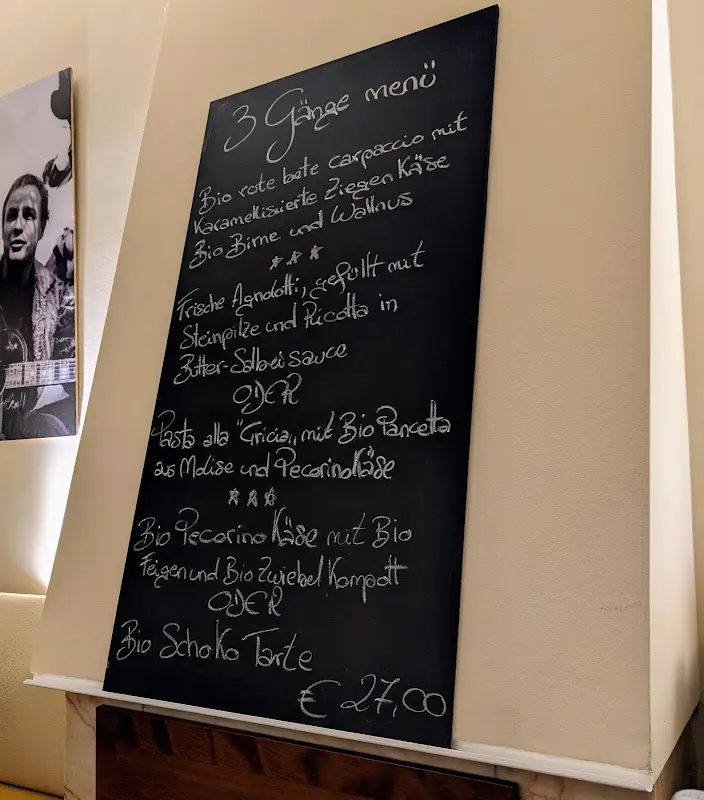 3 Gänge menü
Bio rote bete carpaccio mit
Karamellisierte Ziegen Käse
Bio Birne und Wallnus
***
Frische Agnolotti, gefüllt mit
Steinpilze und Ricotta in
Butter-Salbei sauce
ODER
Pasta alla "Gricia„ mit Bio Pancetta
aus Molise und Pecorino Käse
***
Bio Pecorino Käse mit Bio
Feigen und Bio Zwiebel Kompott
ODER
Bio Schoko Tarte
€ 27,00